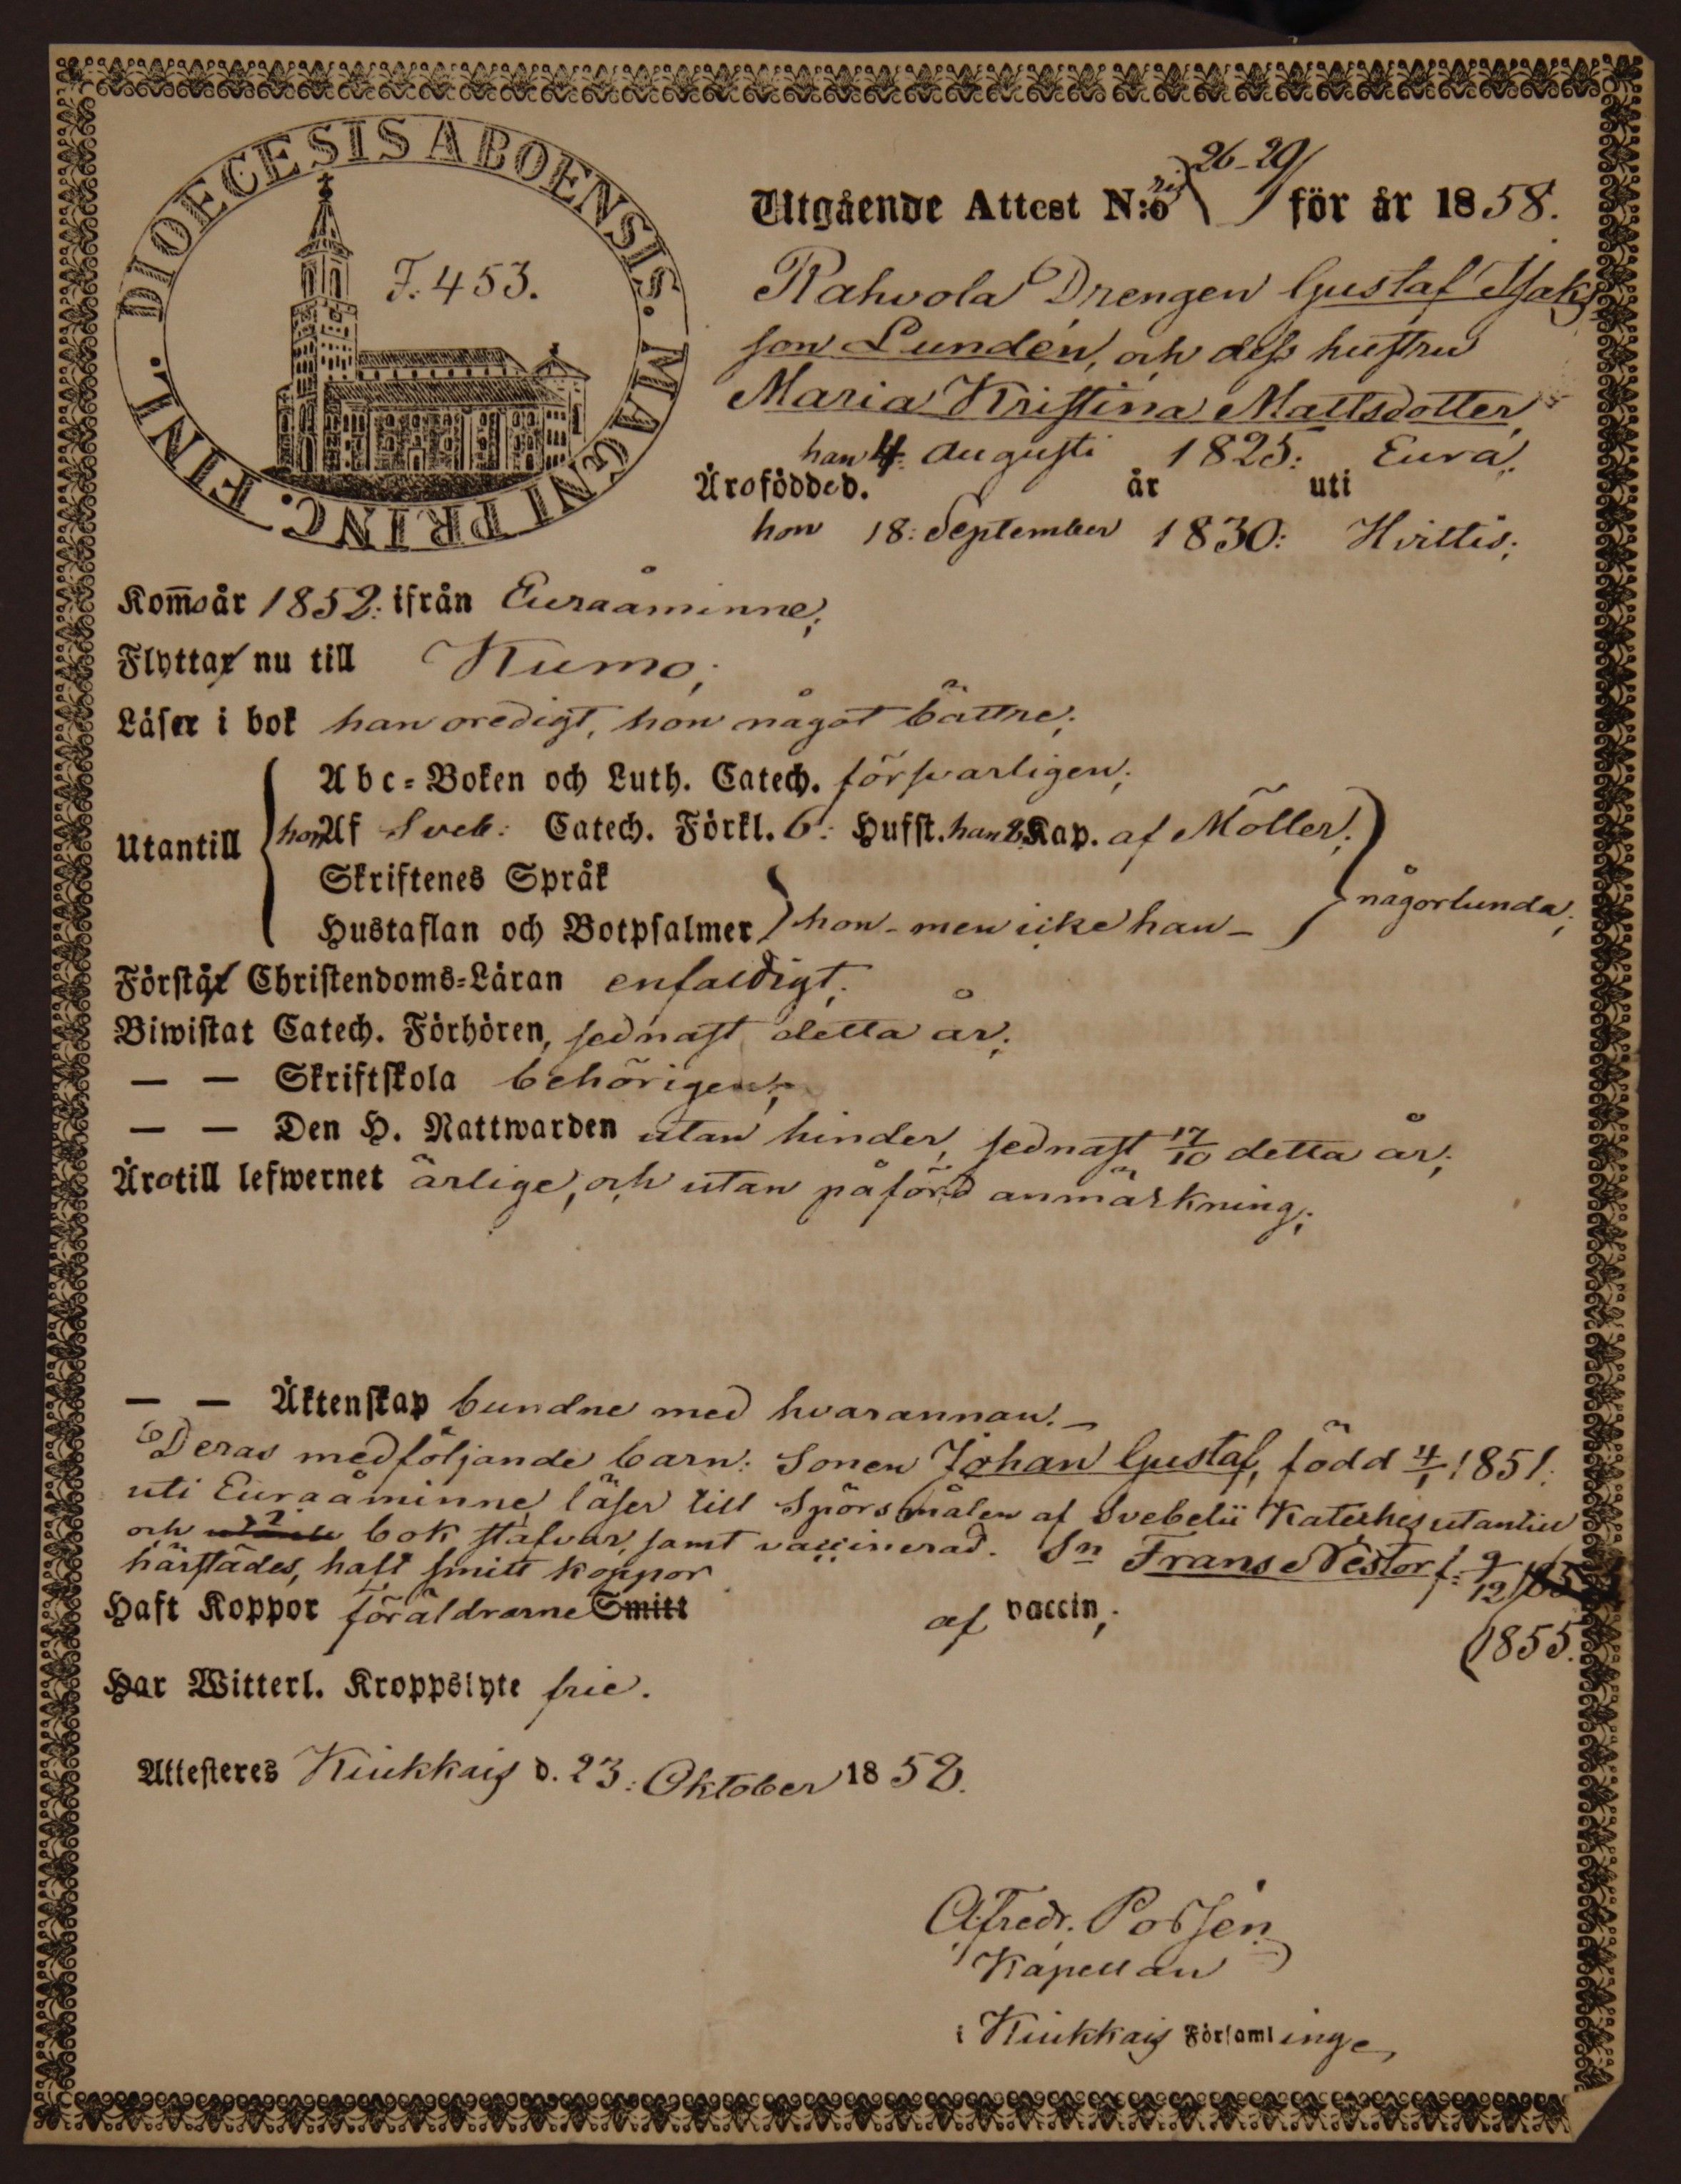 DIOECESIS ABOENSIS. MAGNI PRINC. FINL.
F. 453.
Utgående Attest N:o ris 26-29 för år 1858.
Rahvola Drengen Gustaf Isaks
son Lundén, och dess hustru
Maria Kristina Mattsdotter,
han 4. Augusti 1825: Eura.
Äro födde d. år uti
hon 18: September 1830: Hvittis;
Kom̄o år 1852: ifrån Euraåminne;
Flytta nu till Kumo;
Läser i bok han oredigt, hon något bättre;
Utantill
Abc-Boken och Luth. Catech. försvarligen;
hon Af Sveb: Catech. Förkl. 6: Hufst. han 2 Kap. af Möller;
Skriftenes Språk
Hustaflan och Botpsalmer hon - men icke han -
någorlunda;
Förstå Christendoms-Läran enfaldigt;
Biwistat Catech. Förhören, sednast detta år;
— — Skriftskola behörigen;
— — Den H. Nattwarden utan hinder, sednast 17/10 detta år;
Äro till lefwernet ärlige, och utan påförd anmärkning;
— — Äktenskap bundne med hvarannan. —
Deras medföljande barn: Sonen Johan Gustaf, född 4/1 1851:
uti Euraåminne, läser till Spörsmålen af Svebelii Katekhes utantill
och i bok stafvar, samt vaccinerad. Sn Frans Nestor f. 9/12
härstädes, haft smitt koppor
1855.
Haft Koppor föräldrarne Smitt af vaccin;
Har Witterl. Kroppslyte frie.
Attesteres Kiukkais d. 23: Oktober 1858.
A. Fredr. Porsén
Kapellan
i Kiukkais Församlinge